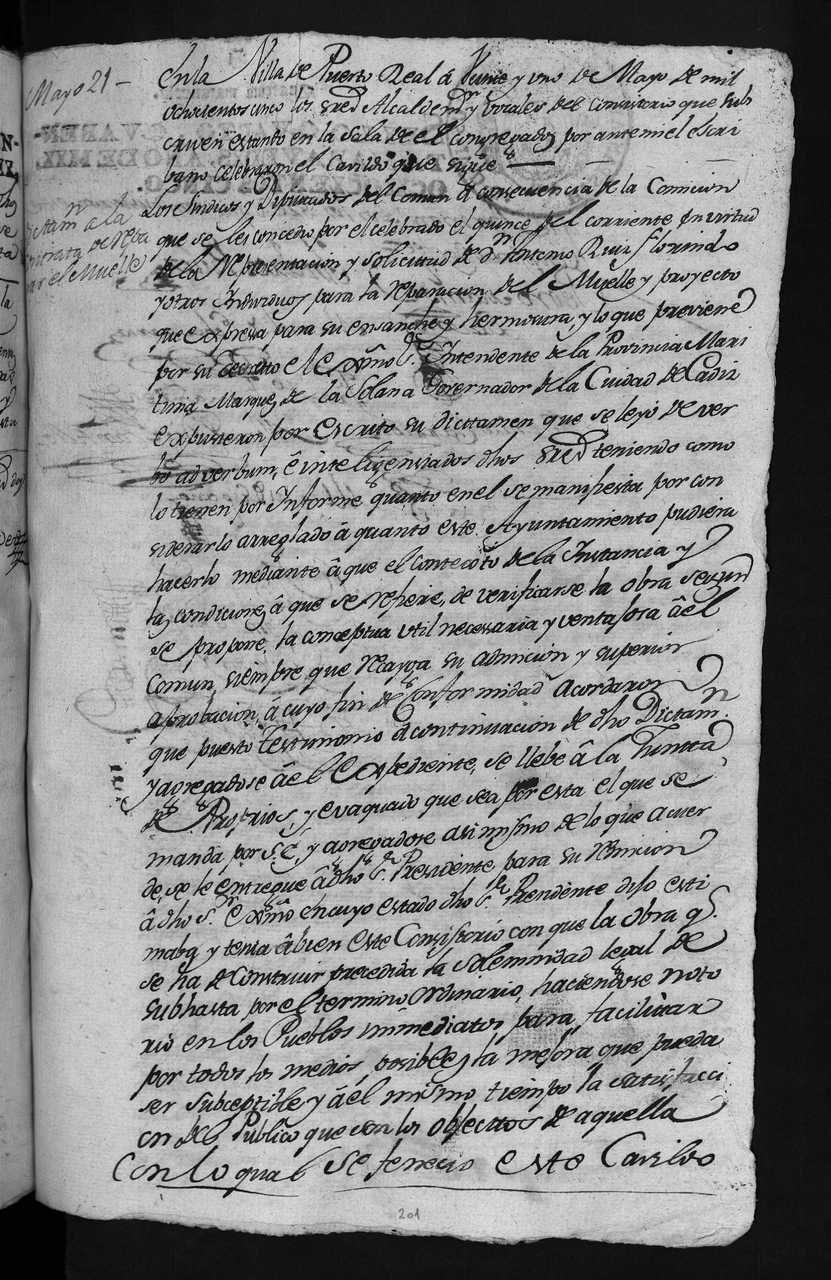 Mayo 21 —
En la Villa de Puerto Real á Veinte y uno de Mayo de mil
ochocientos uno los sres Alcalde y vocales del Consistorio que subs
criven estanto en la Sala de el congregados por antemi el escri
bano celebraron el Cavildo que sigue
Los Sindicos y Diputados del Comun á consecuencia de la Comicion
que se les concedio por el celebrado el quince del corriente en virtud
de la Representacion y solicitud de Dn Antonio Ruiz Florindo
y otros Individuos para la reparacion del Muelle y proyecto
que expresa para su ensanche y hermosura, y lo que previene
por su decreto el Exmo Sr Intendente de la Provincia Mari
tima Marques de la Solana Governador de la Ciudad de Cadiz
expusieron por escrito su dictamen que se leyó de ver
bo ad verbum, é inteligenciados dhos sres teniendo como
lo tienen por Informe quanto en el se manifiesta por con
siderarlo arreglado á quanto este Ayuntamiento pudiera
hacerlo mediante á que el contecsto de la Instancia y
las condiciones á que se refiere, de verificarse la obra segun
se propone, la conceptua util necesaria y ventajosa áel
comun, siempre que recayga su admicion y superior
aprobacion, á cuyo fin de conformidad acordaron
que puesto Testimonio á continuacion de dho Dictamn
y agregadose áel Expediente, se llebe á la Juntta
de Proprios, y evaquado que sea por esta el que se
manda por S.E. y agregadose asi mismo de lo que acuer
de, se le entregue ádho Sr Presidente para su remicion
á dho Sr Exmo en cuyo estado dho Sr Presidente dijo esti
maba y tenia ábien este Consistorio con que la obra q.
se ha de construir precedida la solemnidad legal de
subhasta por el termino ordinario, haciendose noto
rio en los Pueblos immediatos para facilitar
por todos los medios posibles la mejora que pueda
ser subceptible y áel mismo tiempo la satisfacci
on del Publico que son los objecttos de aquella
Con lo qual se fenecio este Cavildo
201